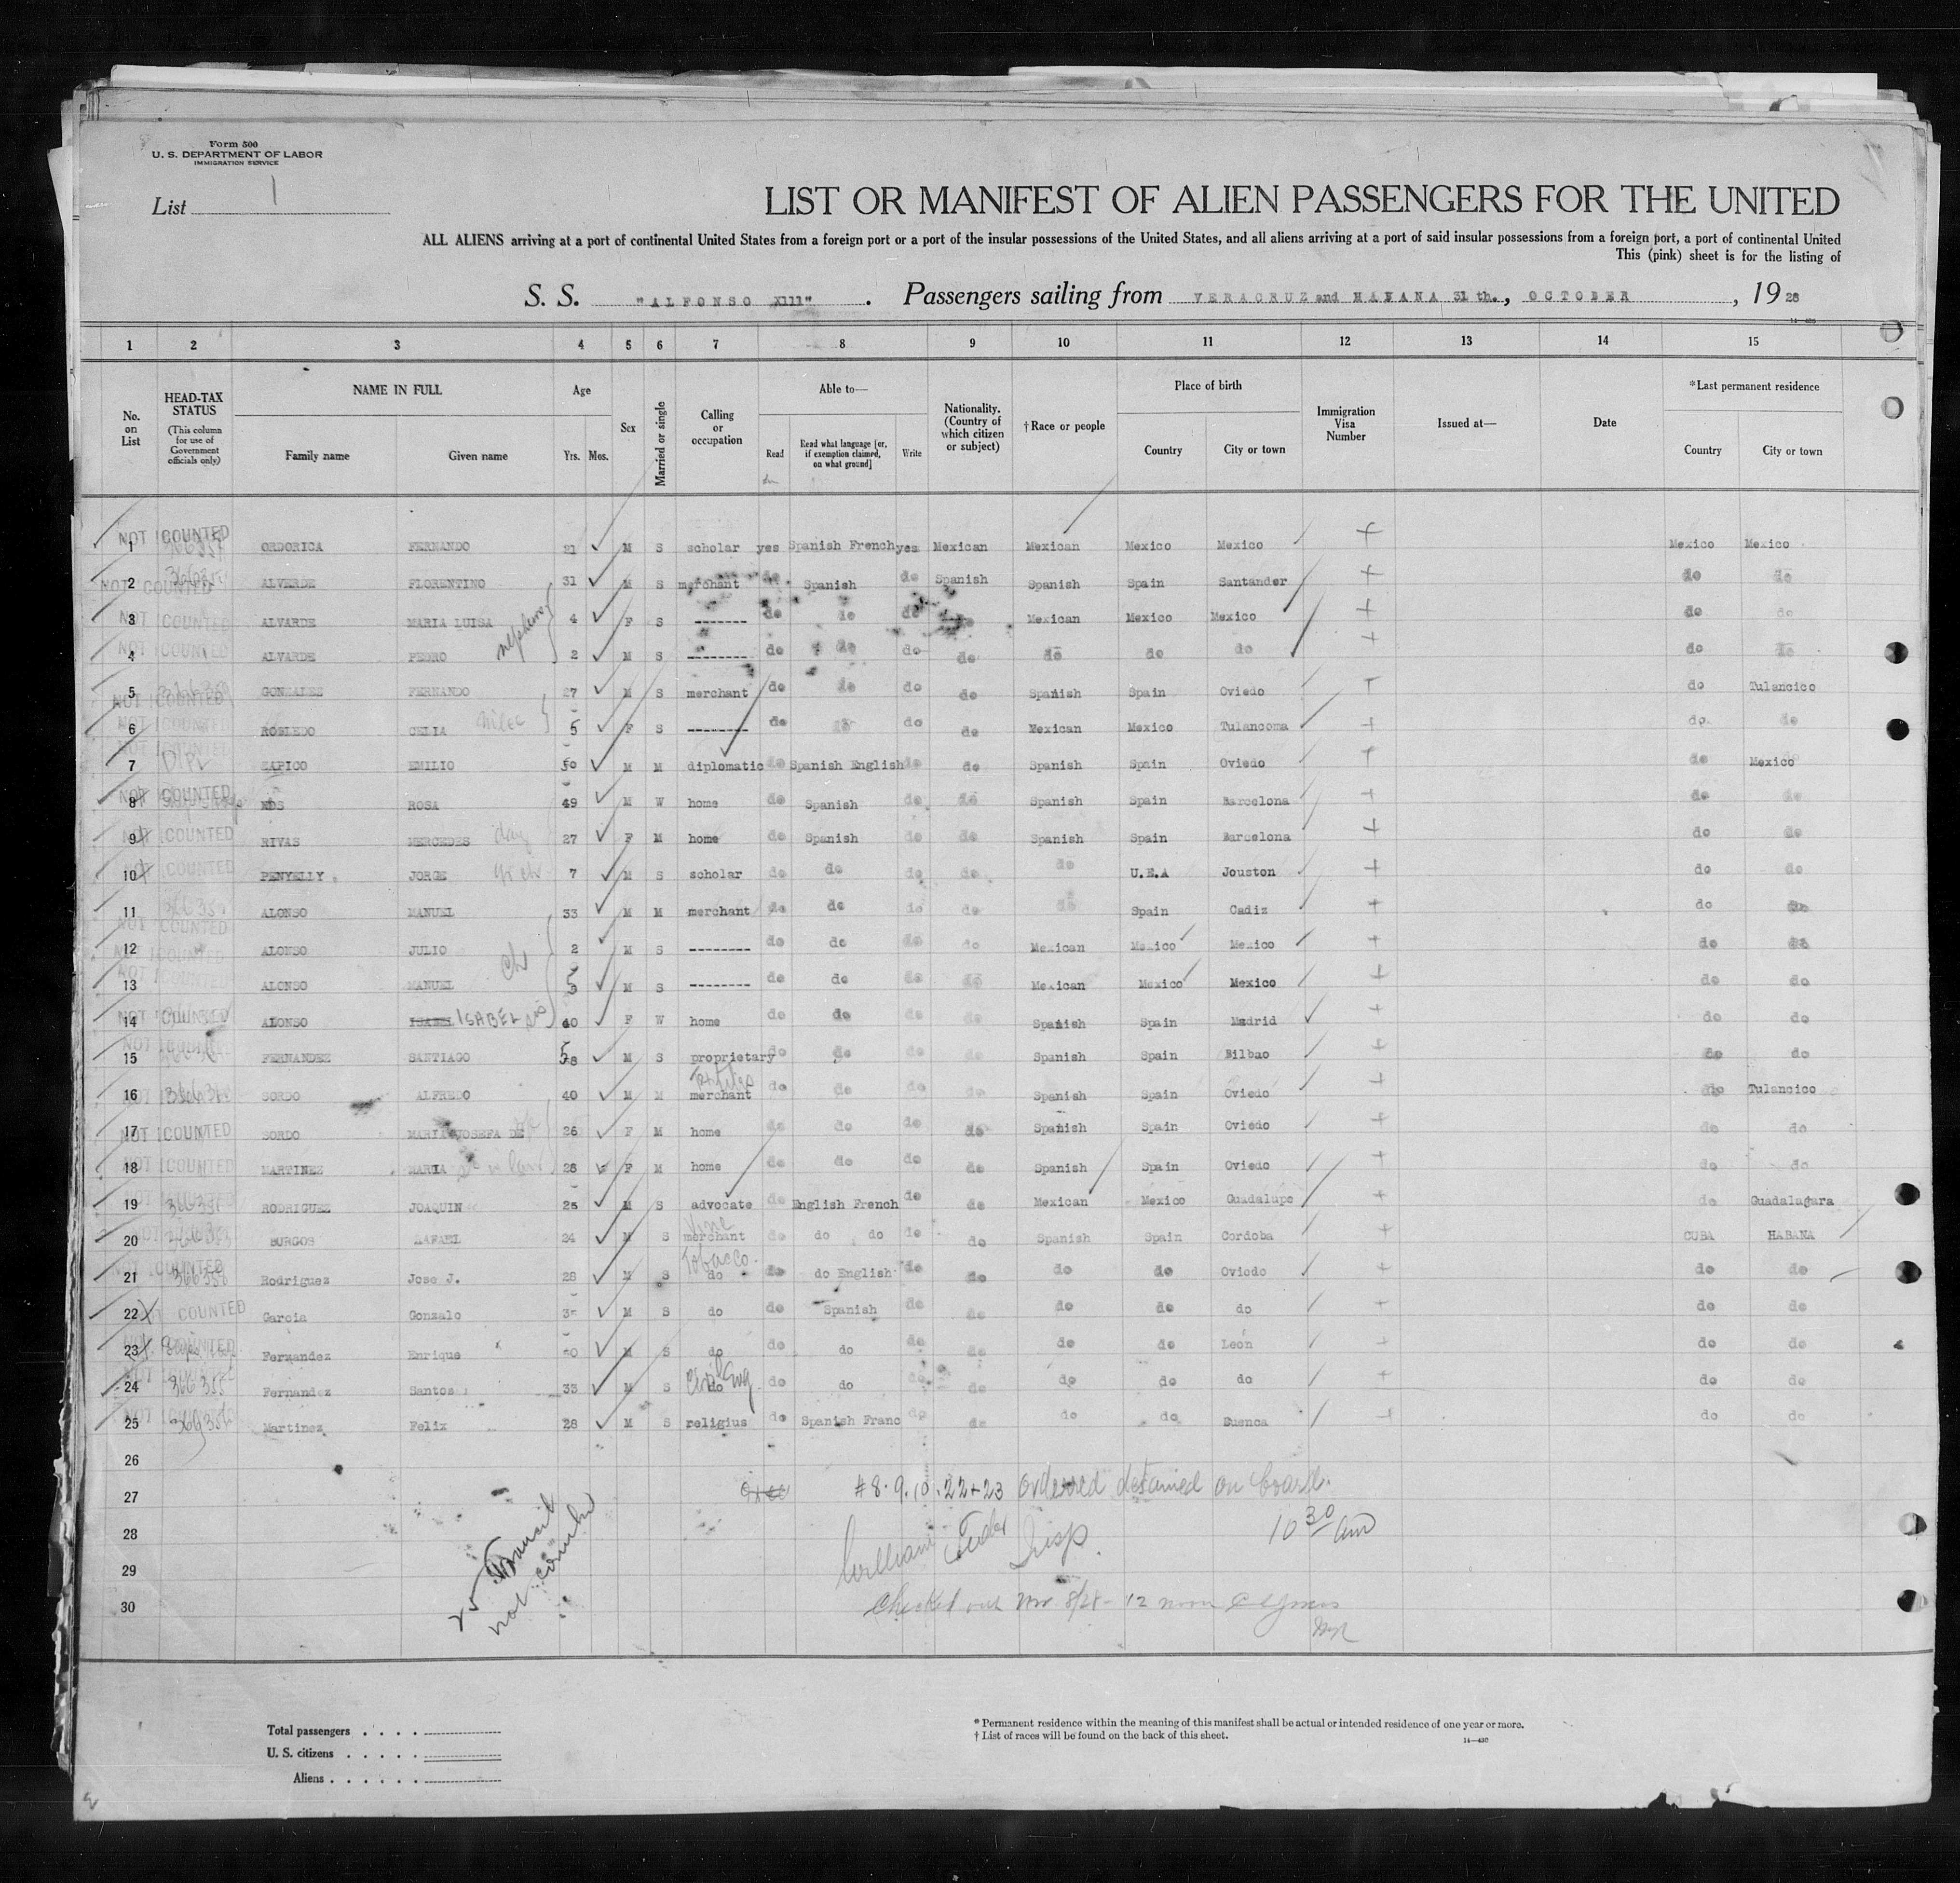 Form 500
U. S. DEPARTMENT OF LABOR
IMMIGRATION SERVICE
List 1
LIST OR MANIFEST OF ALIEN PASSENGERS FOR THE UNITED
ALL ALIENS arriving at a port of continental United States from a foreign port or a port of the insular possessions of the United States, and all aliens arriving at a port of said insular possessions from a foreign port, a port of continental United
This (pink) sheet is for the listing of
S. S. "ALFONSO X111" . Passengers sailing from VERACRUZ and HABANA 31 th., OCTOBER , 19 28
1 2 3 4 5 6 7 8 9 10 11 12 13 14 15
No. on List
HEAD-TAX STATUS (This column for use of Government officials only)
NAME IN FULL
Family name Given name
Age
Yrs. Mos.
Sex
Married or single
Calling or occupation
Able to—
Read Read what language [or, if exemption claimed, on what ground] Write
Nationality. (Country of which citizen or subject)
†Race or people
Place of birth
Country City or town
Immigration Visa Number
Issued at—
Date
*Last permanent residence
Country City or town
1 NOT COUNTED ORDORICA FERNANDO 21 M S scholar yes Spanish French yes Mexican Mexican Mexico Mexico Mexico Mexico
2 NOT COUNTED ALVERDE FLORENTINO 31 M S merchant do Spanish do Spanish Spanish Spain Santander do do
3 NOT COUNTED ALVARDE MARIA LUISA 4 F S ------- do do do Mexican Mexico Mexico do do
4 NOT COUNTED ALVARDE PEDRO 2 M S -------- do do do do do do do do do
5 NOT COUNTED GONZALEZ FERNANDO 27 M S merchant do do do do Spanish Spain Oviedo do Tulancico
6 NOT COUNTED ROBLEDO CELIA 5 F S -------- do do do do Mexican Mexico Tulancoma do do
7 NOT COUNTED DPL ZAPICO EMILIO 50 M M diplomatic do Spanish English do do Spanish Spain Oviedo do Mexico
8 NOT COUNTED ROSA 49 M W home do Spanish do do Spanish Spain Barcelona do do
9 NOT COUNTED RIVAS MERCEDES 27 F M home do Spanish do do Spanish Spain Barcelona do do
10 NOT COUNTED PENYELLY JORGE 7 M S scholar do do do do do U.E.A Jouston do do
11 NOT COUNTED ALONSO MANUEL 33 M M merchant do do do do do Spain Cadiz do do
12 NOT COUNTED ALONSO JULIO 2 M S -------- do do do do Mexican Mexico Mexico do do
13 NOT COUNTED ALONSO MANUEL ch M S -------- do do do do Mexican Mexico Mexico do do
14 NOT COUNTED ALONSO ISABEL ISABEL 40 F W home do do do do Spanish Spain Madrid do do
15 NOT COUNTED FERNANDEZ SANTIAGO 58 M S proprietary do do do do Spanish Spain Bilbao do do
16 NOT COUNTED SORDO ALFREDO 40 M M merchant do do do do Spanish Spain Oviedo do Tulancico
17 NOT COUNTED SORDO MARIA JOSEFA DE 26 F M home do do do do Spanish Spain Oviedo do do
18 NOT COUNTED MARTINEZ MARIA 28 F M home do do do do Spanish Spain Oviedo do do
19 RODRIGUEZ JOAQUIN 25 M S advocate do English French do do Mexican Mexico Guadalupe do Guadalagara
20 BURGOS RAFAEL 24 M S merchant do do do do do Spanish Spain Cordoba CUBA HABANA
21 NOT COUNTED Rodriguez Jose J. 28 M S Tobacco. do do do English do do do do Oviedo do do
22 COUNTED Garcia Gonzalo 35 M S do do Spanish do do do do do do do
23 NOT COUNTED Fernandez Enrique M S do do do do do do do León do do
24 NOT COUNTED Fernandez Santos 33 M S Civil Eng. do do do do do do do do do do
25 NOT COUNTED Martinez Felix 28 M S religius do Spanish Franc do do do do Suenca do do
26
27 #8.9.10.22+23 ordered detained on board.
28 William Insp. 10 30 am
29
30 Checked out Nov 8/28 - 12 noon
25 Transit
not counted
Total passengers . . . .
U. S. citizens . . . . .
Aliens . . . . . .
* Permanent residence within the meaning of this manifest shall be actual or intended residence of one year or more.
† List of races will be found on the back of this sheet.
14—430